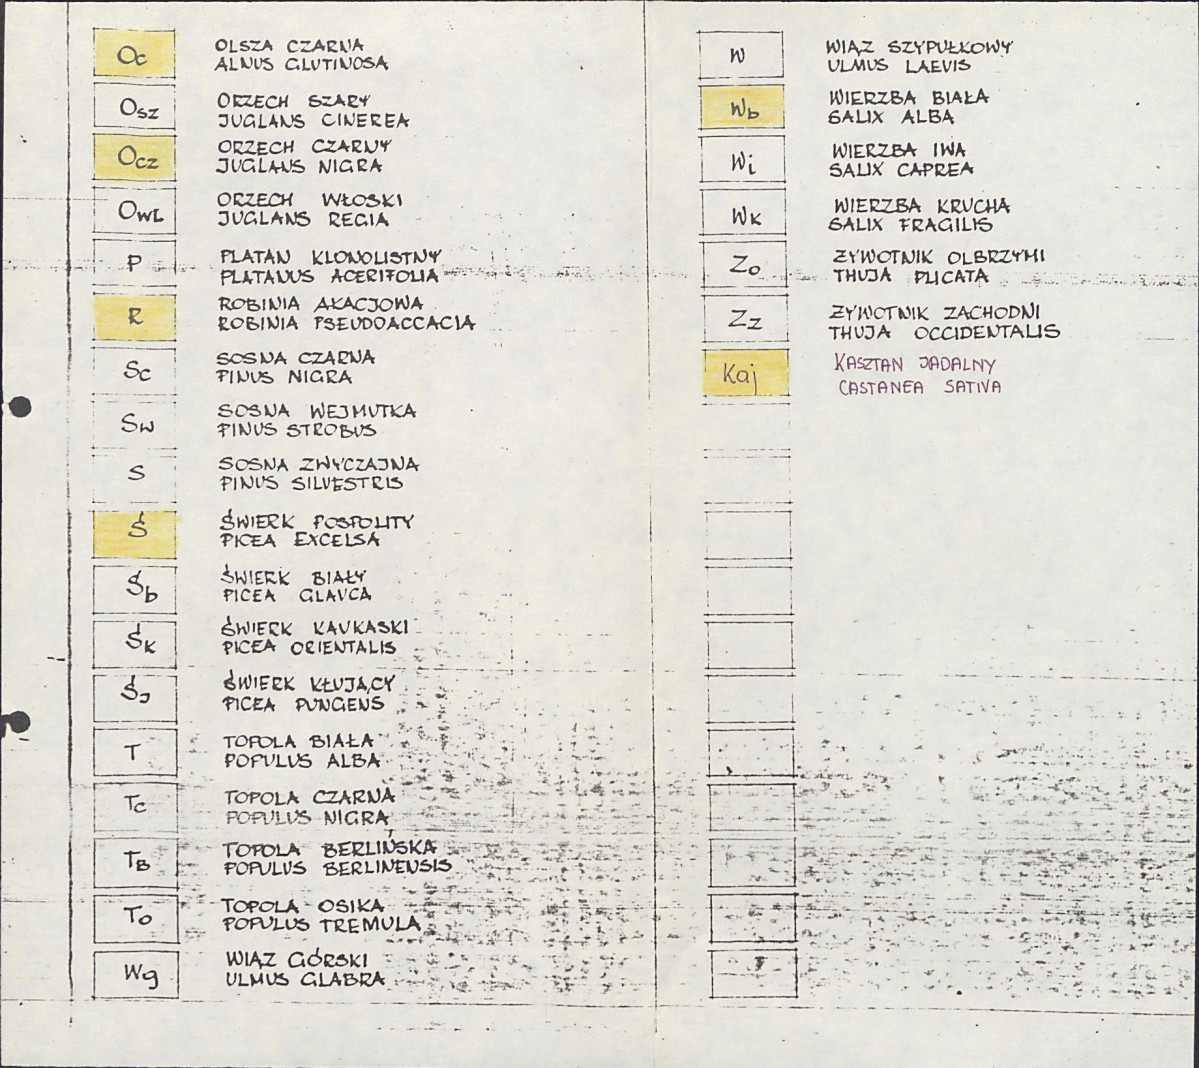 Oc
OLSZA CZARNA
ALNUS GLUTINOSA
Osz
ORZECH SZARY
JUGLANS CINEREA
Ocz
ORZECH CZARNY
JUGLANS NIGRA
OwŁ
ORZECH WŁOSKI
JUGLANS REGIA
P
PLATAN KLONOLISTNY
PLATANUS ACERIFOLIA
R
ROBINIA AKACJOWA
ROBINIA PSEUDOACCACIA
Sc
SOSNA CZARNA
PINUS NIGRA
Sw
SOSNA WEJMUTKA
PINUS STROBUS
S
SOSNA ZWYCZAJNA
PINUS SILVESTRIS
Ś
ŚWIERK POSPOLITY
PICEA EXCELSA
Śb
ŚWIERK BIAŁY
PICEA GLAUCA
Śk
ŚWIERK KAUKASKI
PICEA ORIENTALIS
ŚJ
ŚWIERK KŁUJĄCY
PICEA PUNGENS
T
TOPOLA BIAŁA
POPULUS ALBA
Tc
TOPOLA CZARNA
POPULUS NIGRA
TB
TOPOLA BERLIŃSKA
POPULUS BERLINENSIS
To
TOPOLA OSIKA
POPULUS TREMULA
Wg
WIĄZ GÓRSKI
ULMUS GLABRA
W
WIĄZ SZYPUŁKOWY
ULMUS LAEVIS
Wb
WIERZBA BIAŁA
SALIX ALBA
Wi
WIERZBA IWA
SALIX CAPREA
Wk
WIERZBA KRUCHA
SALIX FRAGILIS
Zo
ŻYWOTNIK OLBRZYMI
THUJA PLICATA
Zz
ŻYWOTNIK ZACHODNI
THUJA OCCIDENTALIS
Kaj
KASZTAN JADALNY
CASTANEA SATIVA